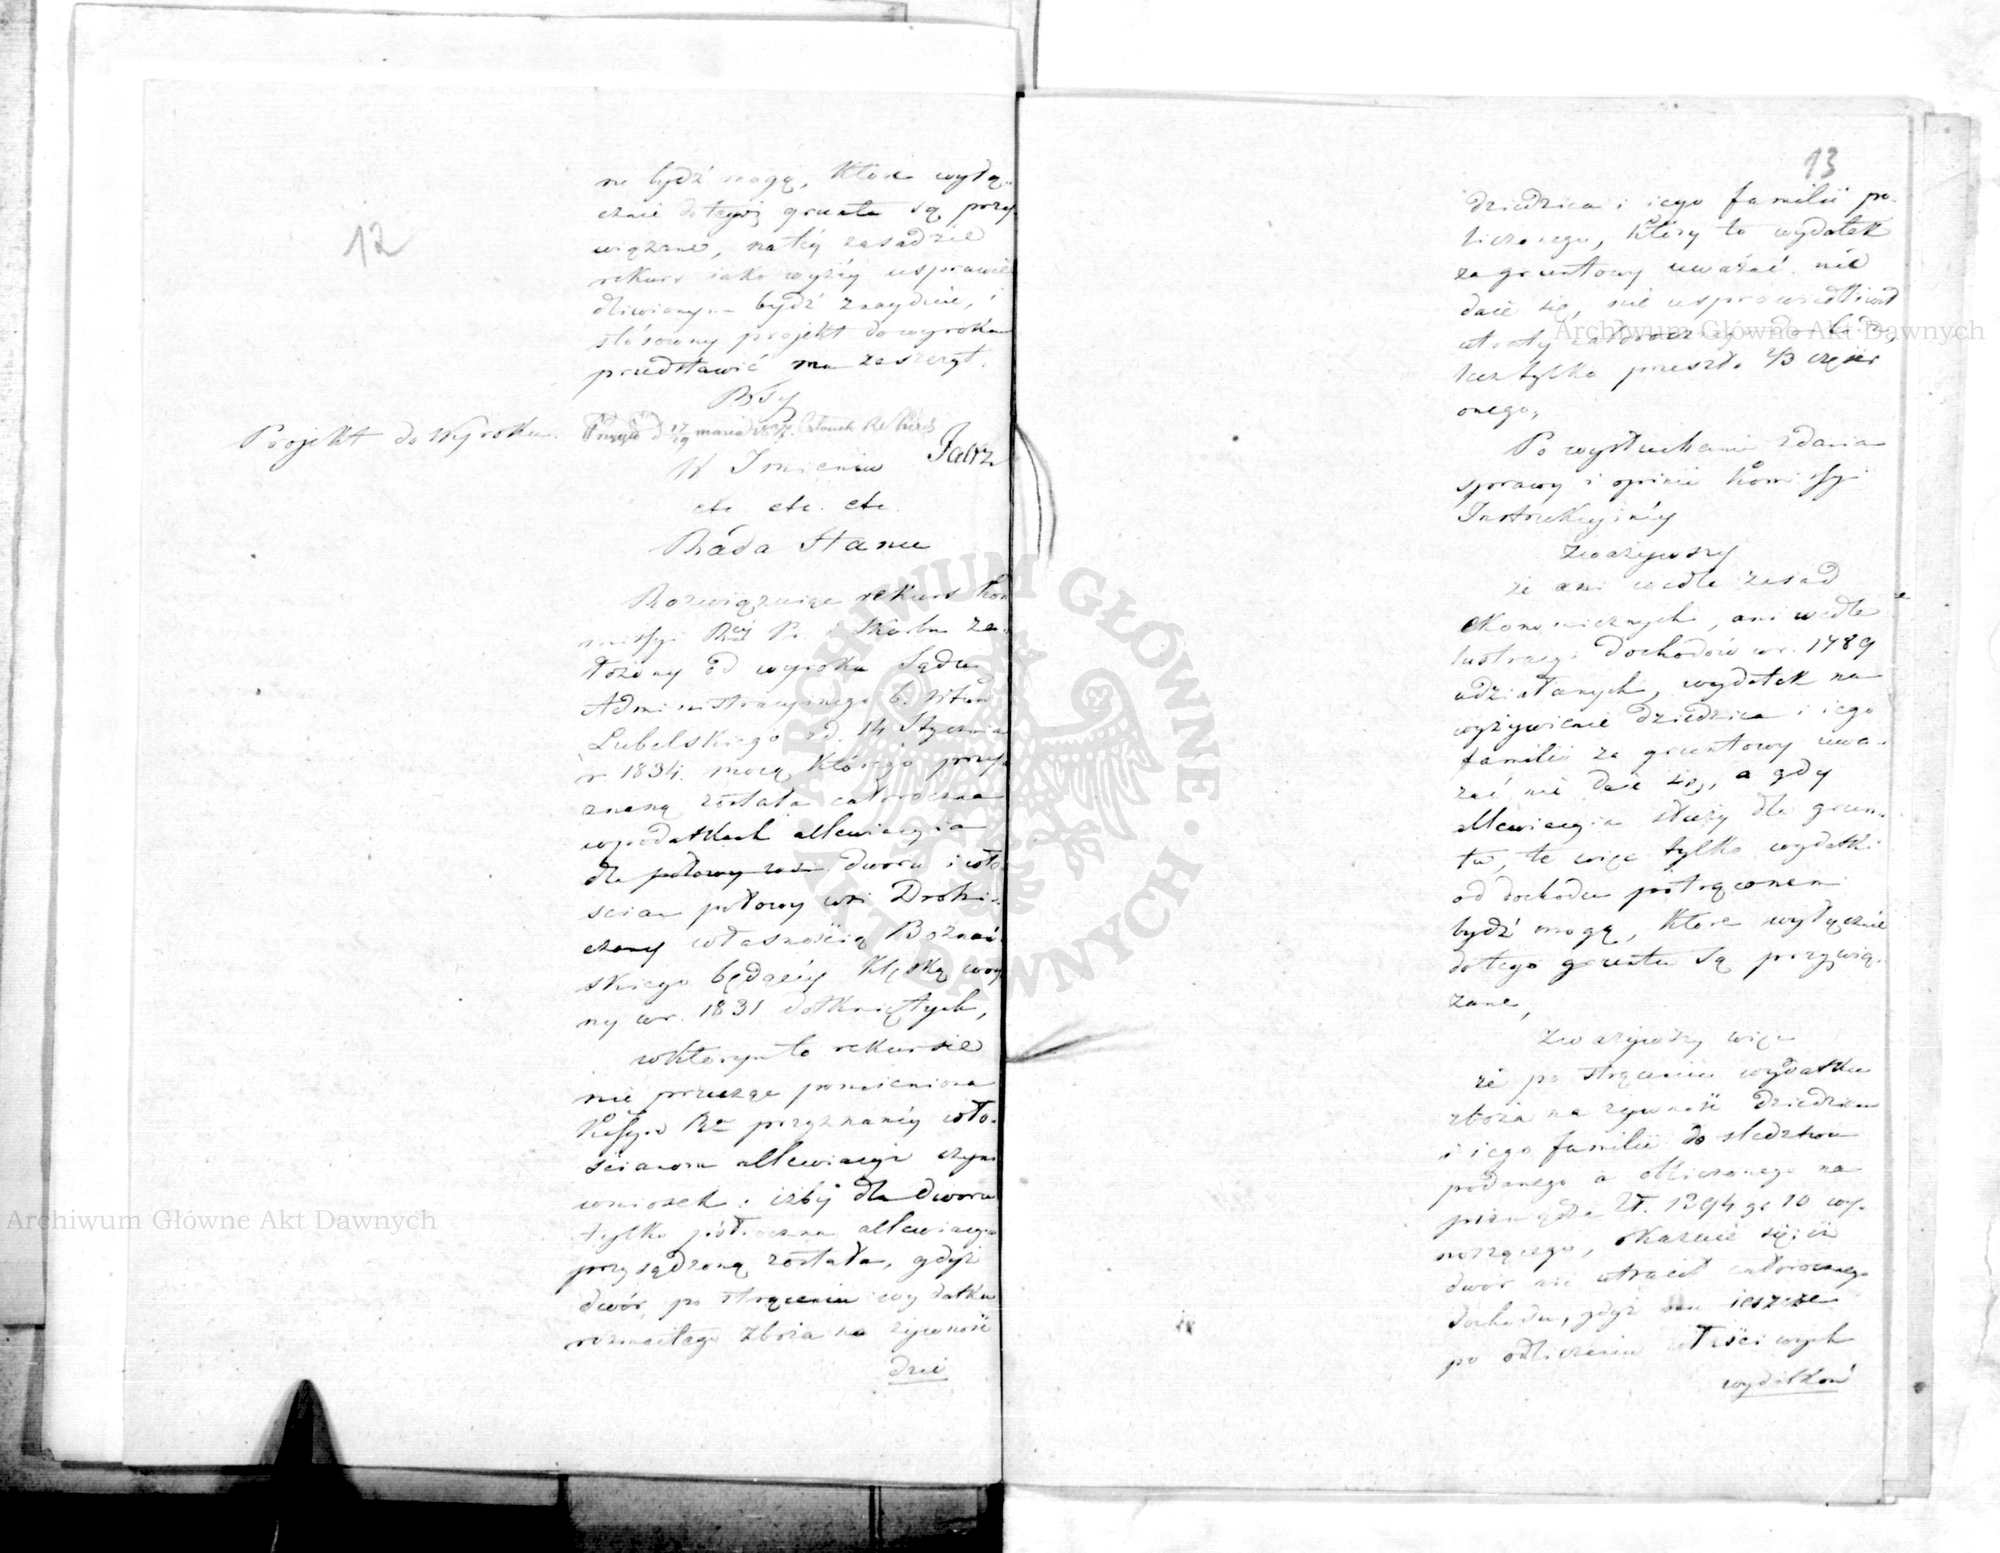 12
ne bydź mogą, które wyłą-
cznie do tegoż gruntu są przy
wiązane, na téy zasadzie
rekurs iako wyżéy usprawie
dliwionym bydź znayduie, i
stósowny projekt do wyroku
przedstawić ma zaszczyt.
Projekt do Wyroku.
W Imieniu
etc. etc. etc.
Rada Stanu
Rozwiązuiąc rekurs Kom
missyi Rząd. P. i Skarbu za-
łożony od wyroku Sądu
Administracyinego b. Wtwa
Lubelskiego z d. 14 Stycznia
r 1834. mocą którego przy-
znaną została całoroczna
w podatkach allewiacyia
dla dworu i wło-
ścian połowy wsi Drohi-
czany własnością Boznań-
skiego będącéy klęską woy
ny w r. 1831 dotkniętych,
w którym to rekursie
nie przecząc pomieniona
Kissya Rwa przyznanéy wło-
ścianom allewiacyi czyni
wniosek: iżby dla dworu
tylko półroczna allewiacya
przysądzoną została, gdyż
dwór po strąceniu wydatku
rozmaitego zboża na żywność
dzie
13
dziedzica i iego familii po-
liczonego, który to wydatek
za gruntowy uważać nie
daie się, nie usprawiedliwił
utraty całorocznego doch
lecz tylko przeszło 2/3 części
onego,
Po wysłuchaniu zdania
sprawy i opinii Kommissyi
Instrukcyinéy
Zważywszy
że ani wedle zasad
ekonomicznych, ani wedle
lustracyi dochodów w r. 1789
udziałanych, wydatek na
wyżywienie dziedzica i iego
familii za gruntowy uwa-
żać nie daie się, a gdy
allewiacyia służy dla grun-
tu, te więc tylko wydatki
od dochodu potrąconemi
bydź mogą, które wyłącznie
do tego gruntu są przywią-
zane,
Zważywszy więc
że po strąceniu wydatku
zboża na żywność dziedzica
i iego familii do śledztwa
podanego a obliczonego na
pieniądze Zł. 1294 gr 10 wy-
noszącego, okazuie się, iż
dwór nie utracił całorocznego
dochodu, gdyż mu ieszcze
po odliczeniu właściwych
wydatków
Archiwum Główne Akt Dawnych
Archiwum Główne Akt Dawnych
ARCHIWUM GŁÓWNE AKT DAWNYCH